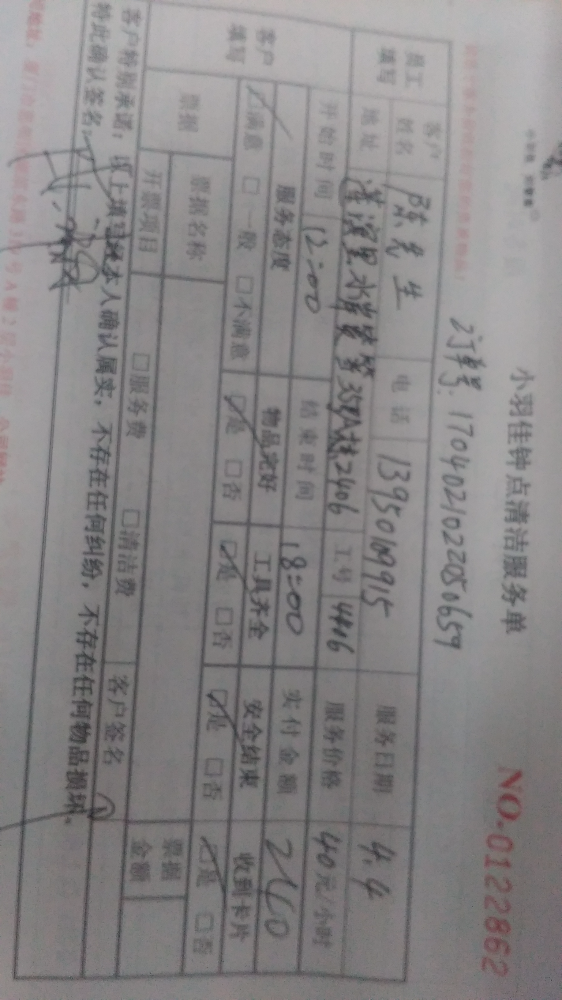 小羽佳钟点清洁服务单
NO.0122862
订单号:1704021022050659
员工填写 客户姓名 陈先生 电话 13950109915 服务日期 4.4
地址 莲滨里 35号A栋2406 工号 4406 服务价格 40元/小时
开始时间 12:00 结束时间 18:00 实付金额 240
客户填写 服务态度 物品完好 工具齐全 安全结束 收到卡片
☑满意 □一般 □不满意 ☑是 □否 ☑是 □否 ☑是 □否 ☑是 □否
票据 票据名称 票据金额
开票项目 □服务费 □清洁费 客户签名
客户特别承诺:以上填写经本人确认属实,不存在任何纠纷,不存在任何物品损坏。
特此确认签名: